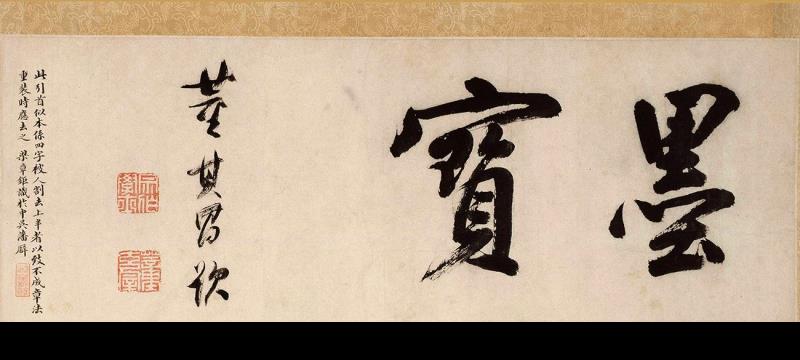 墨寶
董其昌欵
此引首似本係四字被人割去上半者以致不成章法
重裝時應去之 梁章鉅識於中吳藩廨